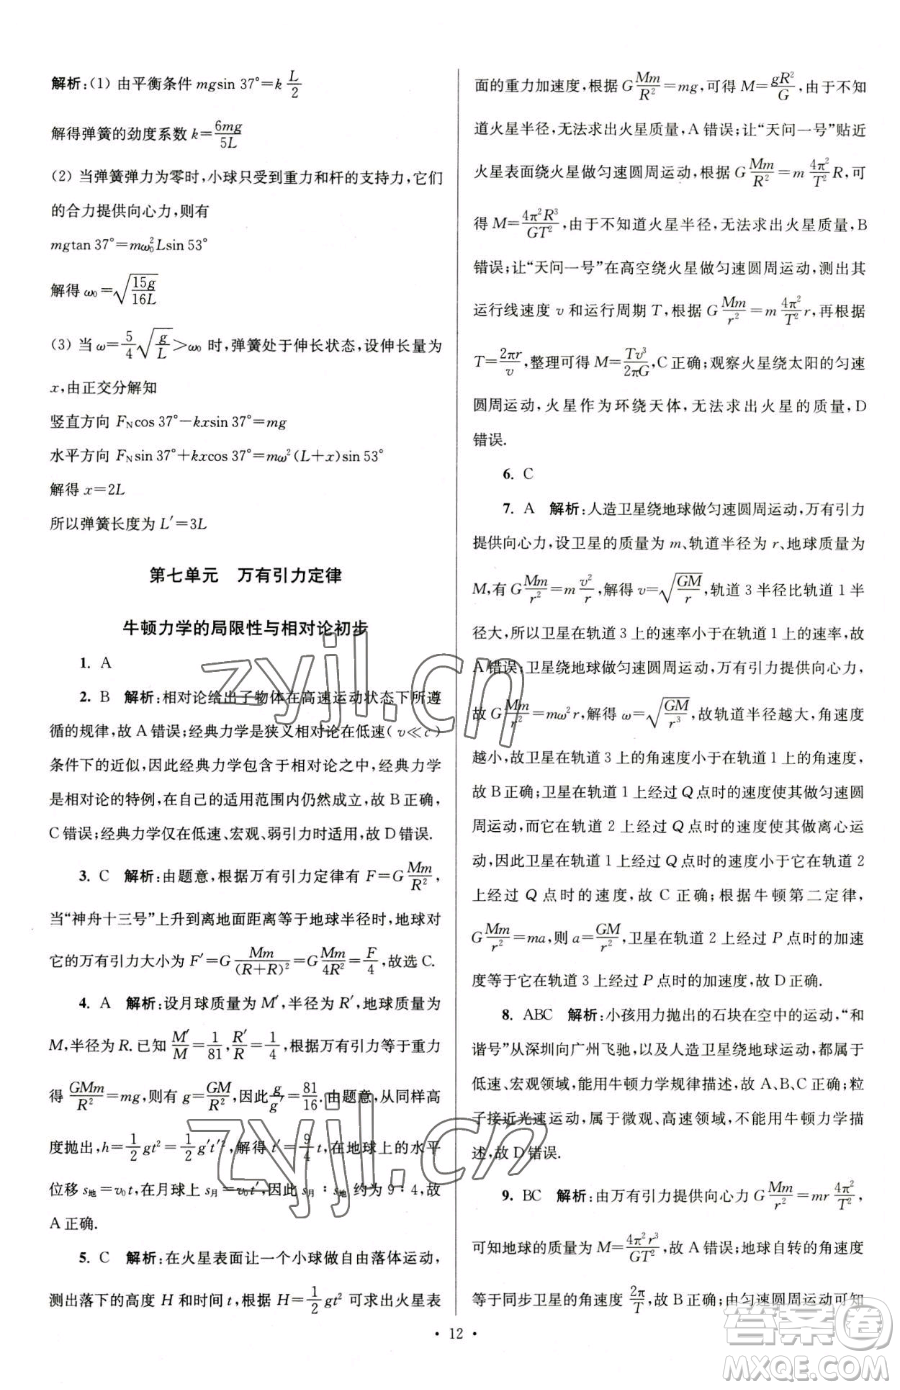 解析:(1) 由平衡条件 mgsin 37°=k L/2
解得弹簧的劲度系数 k=6mg/5L
(2) 当弹簧弹力为零时,小球只受到重力和杆的支持力,它们
的合力提供向心力,则有
mgtan 37°=mω₀²Lsin 53°
解得 ω₀=√(15g/16L)
(3) 当 ω=5/4 √(g/L)>ω₀ 时,弹簧处于伸长状态,设伸长量为
x,由正交分解知
竖直方向 F_N cos 37°−kxsin 37°=mg
水平方向 F_N sin 37°+kxcos 37°=mω²(L+x)sin 53°
解得 x=2L
所以弹簧长度为 L′=3L
第七单元 万有引力定律
牛顿力学的局限性与相对论初步
1. A
2. B 解析:相对论给出了物体在高速运动状态下所遵
循的规律,故 A 错误;经典力学是狭义相对论在低速(v≪c)
条件下的近似,因此经典力学包含于相对论之中,经典力学
是相对论的特例,在自己的适用范围内仍然成立,故 B 正确,
C 错误;经典力学仅在低速、宏观、弱引力时适用,故 D 错误.
3. C 解析:由题意,根据万有引力定律有 F=G Mm/R²,
当“神舟十三号”上升到离地面距离等于地球半径时,地球对
它的万有引力大小为 F′=G Mm/(R+R)²=G Mm/4R²=F/4,故选 C.
4. A 解析:设月球质量为 M′,半径为 R′,地球质量为
M,半径为 R.已知 M′/M=1/81,R′/R=1/4,根据万有引力等于重力
得 GMm/R²=mg,故有 g=GM/R²,因此 g/g′=81/16.由题意,从同样高
度抛出,h=1/2 gt²=1/2 g′t′²,解得 t′=9/4 t,在地球上的水平
位移 s地=v₀t,在月球上 s月=v₀t′,因此 s月∶s地 约为 9∶4,故
A 正确.
5. C 解析:在火星表面让一个小球做自由落体运动,
测出落下的高度 H 和时间 t,根据 H=1/2 gt² 可求出火星表
面的重力加速度,根据 G Mm/R²=mg,可得 M=gR²/G,由于不知
道火星半径,无法求出火星质量,A 错误;让“天问一号”贴近
火星表面绕火星做匀速圆周运动,根据 G Mm/R²=m 4π²/T² R,可
得 M=4π²R³/GT²,由于不知道火星半径,无法求出火星质量,B
错误;让“天问一号”在高空绕火星做匀速圆周运动,测出其
运行线速度 v 和运行周期 T,根据 G Mm/r²=m 4π²/T² r,再根据
T=2πr/v,整理可得 M=Tv³/2πG,C 正确;观察火星绕太阳的匀速
圆周运动,火星作为环绕天体,无法求出火星的质量,D
错误.
6. C
7. A 解析:人造卫星绕地球做匀速圆周运动,万有引力
提供向心力,设卫星的质量为 m、轨道半径为 r、地球质量为
M,有 G Mm/r²=m v²/r,解得 v=√(GM/r),轨道 3 半径比轨道 1 半
径大,所以卫星在轨道 3 上的速率小于在轨道 1 上的速率,故
A 错误;卫星绕地球做匀速圆周运动,万有引力提供向心力,
故 G Mm/r²=mω²r,解得 ω=√(GM/r³),故轨道半径越大,角速度
越小,故 B 错误;卫星在轨道 1 上经过 Q 点时的速度使其做匀速圆
周运动,而它在轨道 2 上经过 Q 点时的速度使其做离心运
动,因此卫星在轨道 1 上经过 Q 点时的速度小于它在轨道 2
上经过 Q 点时的速度,故 C 正确;根据牛顿第二定律,
G Mm/r²=ma,则 a=GM/r²,卫星在轨道 2 上经过 P 点时的加速
度等于在轨道 3 上经过 P 点时的加速度,故 D 正确.
8. ABC 解析:小孩用力抛出的石块在空中的运动,“和
谐号”从深圳向广州飞驰,以及人造卫星绕地球运动,都属于
低速、宏观领域,能用牛顿力学规律描述,故 A、B、C 正确;粒
子接近光速运动,属于微观、高速领域,不能用牛顿力学描
述,故 D 错误.
9. BC 解析:由万有引力提供向心力 G Mm/r²=mr 4π²/T²,
可知地球的质量为 M=4π²r³/GT²,故 A 错误;地球自转的角速度
等于同步卫星的角速度 2π/T,故 B 正确;由匀速圆周运动可知
· 12 ·
zyjl.cn
zyjl.cn
答案圈
MXQE.COM